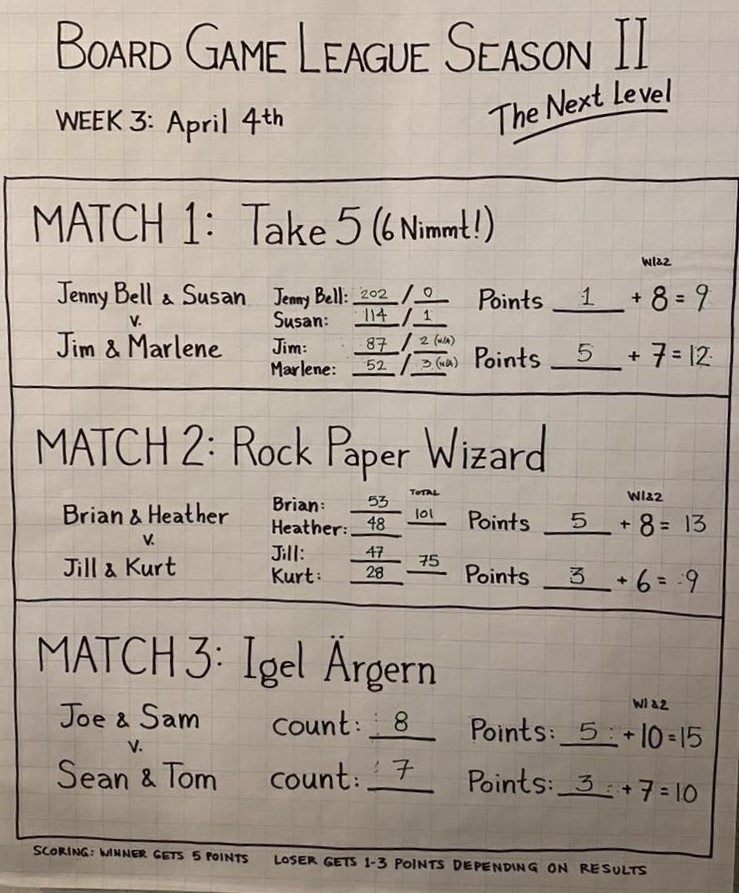 BOARD GAME LEAGUE SEASON II
WEEK 3: April 4th
The Next Level
MATCH 1: Take 5 (6 Nimmt!)
W1&2
Jenny Bell & Susan
v.
Jim & Marlene
Jenny Bell: 202 / 0
Susan: 114 / 1
Jim: 87 / 2 (n/a)
Marlene: 52 / 3 (n/a)
Points 1 + 8 = 9
Points 5 + 7 = 12
MATCH 2: Rock Paper Wizard
Brian & Heather
v.
Jill & Kurt
TOTAL
Brian: 53
Heather: 48
101
Jill: 47
Kurt: 28
75
W1&2
Points 5 + 8 = 13
Points 3 + 6 = 9
MATCH 3: Igel Ärgern
W1&2
Joe & Sam count: 8 Points: 5 + 10 = 15
v.
Sean & Tom count: 7 Points: 3 + 7 = 10
SCORING: WINNER GETS 5 POINTS LOSER GETS 1-3 POINTS DEPENDING ON RESULTS